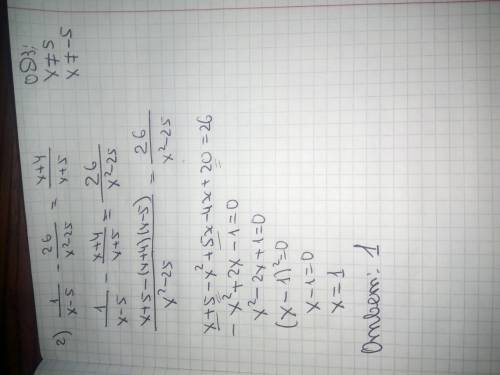 2) 1/(x-5) - 26/(x²-25) = (x+4)/(x+5)
ОДЗ:
x≠5
x≠-5
1/(x-5) - (x+4)/(x+5) = 26/(x²-25)
(x+5-(x+4)(x-5))/(x²-25) = 26/(x²-25)
x+5-x²+5x-4x+20=26
-x²+2x-1=0
x²-2x+1=0
(x-1)²=0
x-1=0
x=1
Ответ: 1